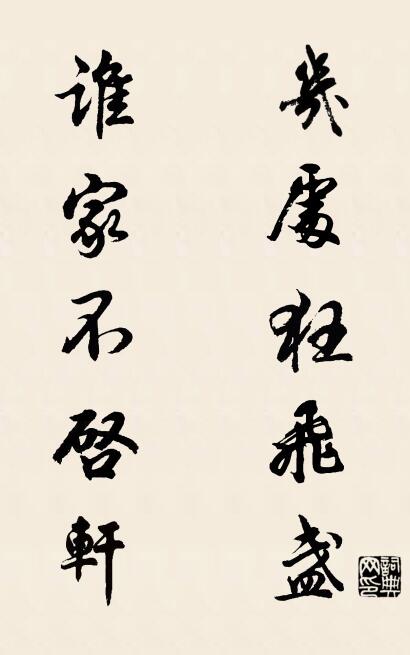 幾處狂飛盞
誰家不啓軒
詞典網印